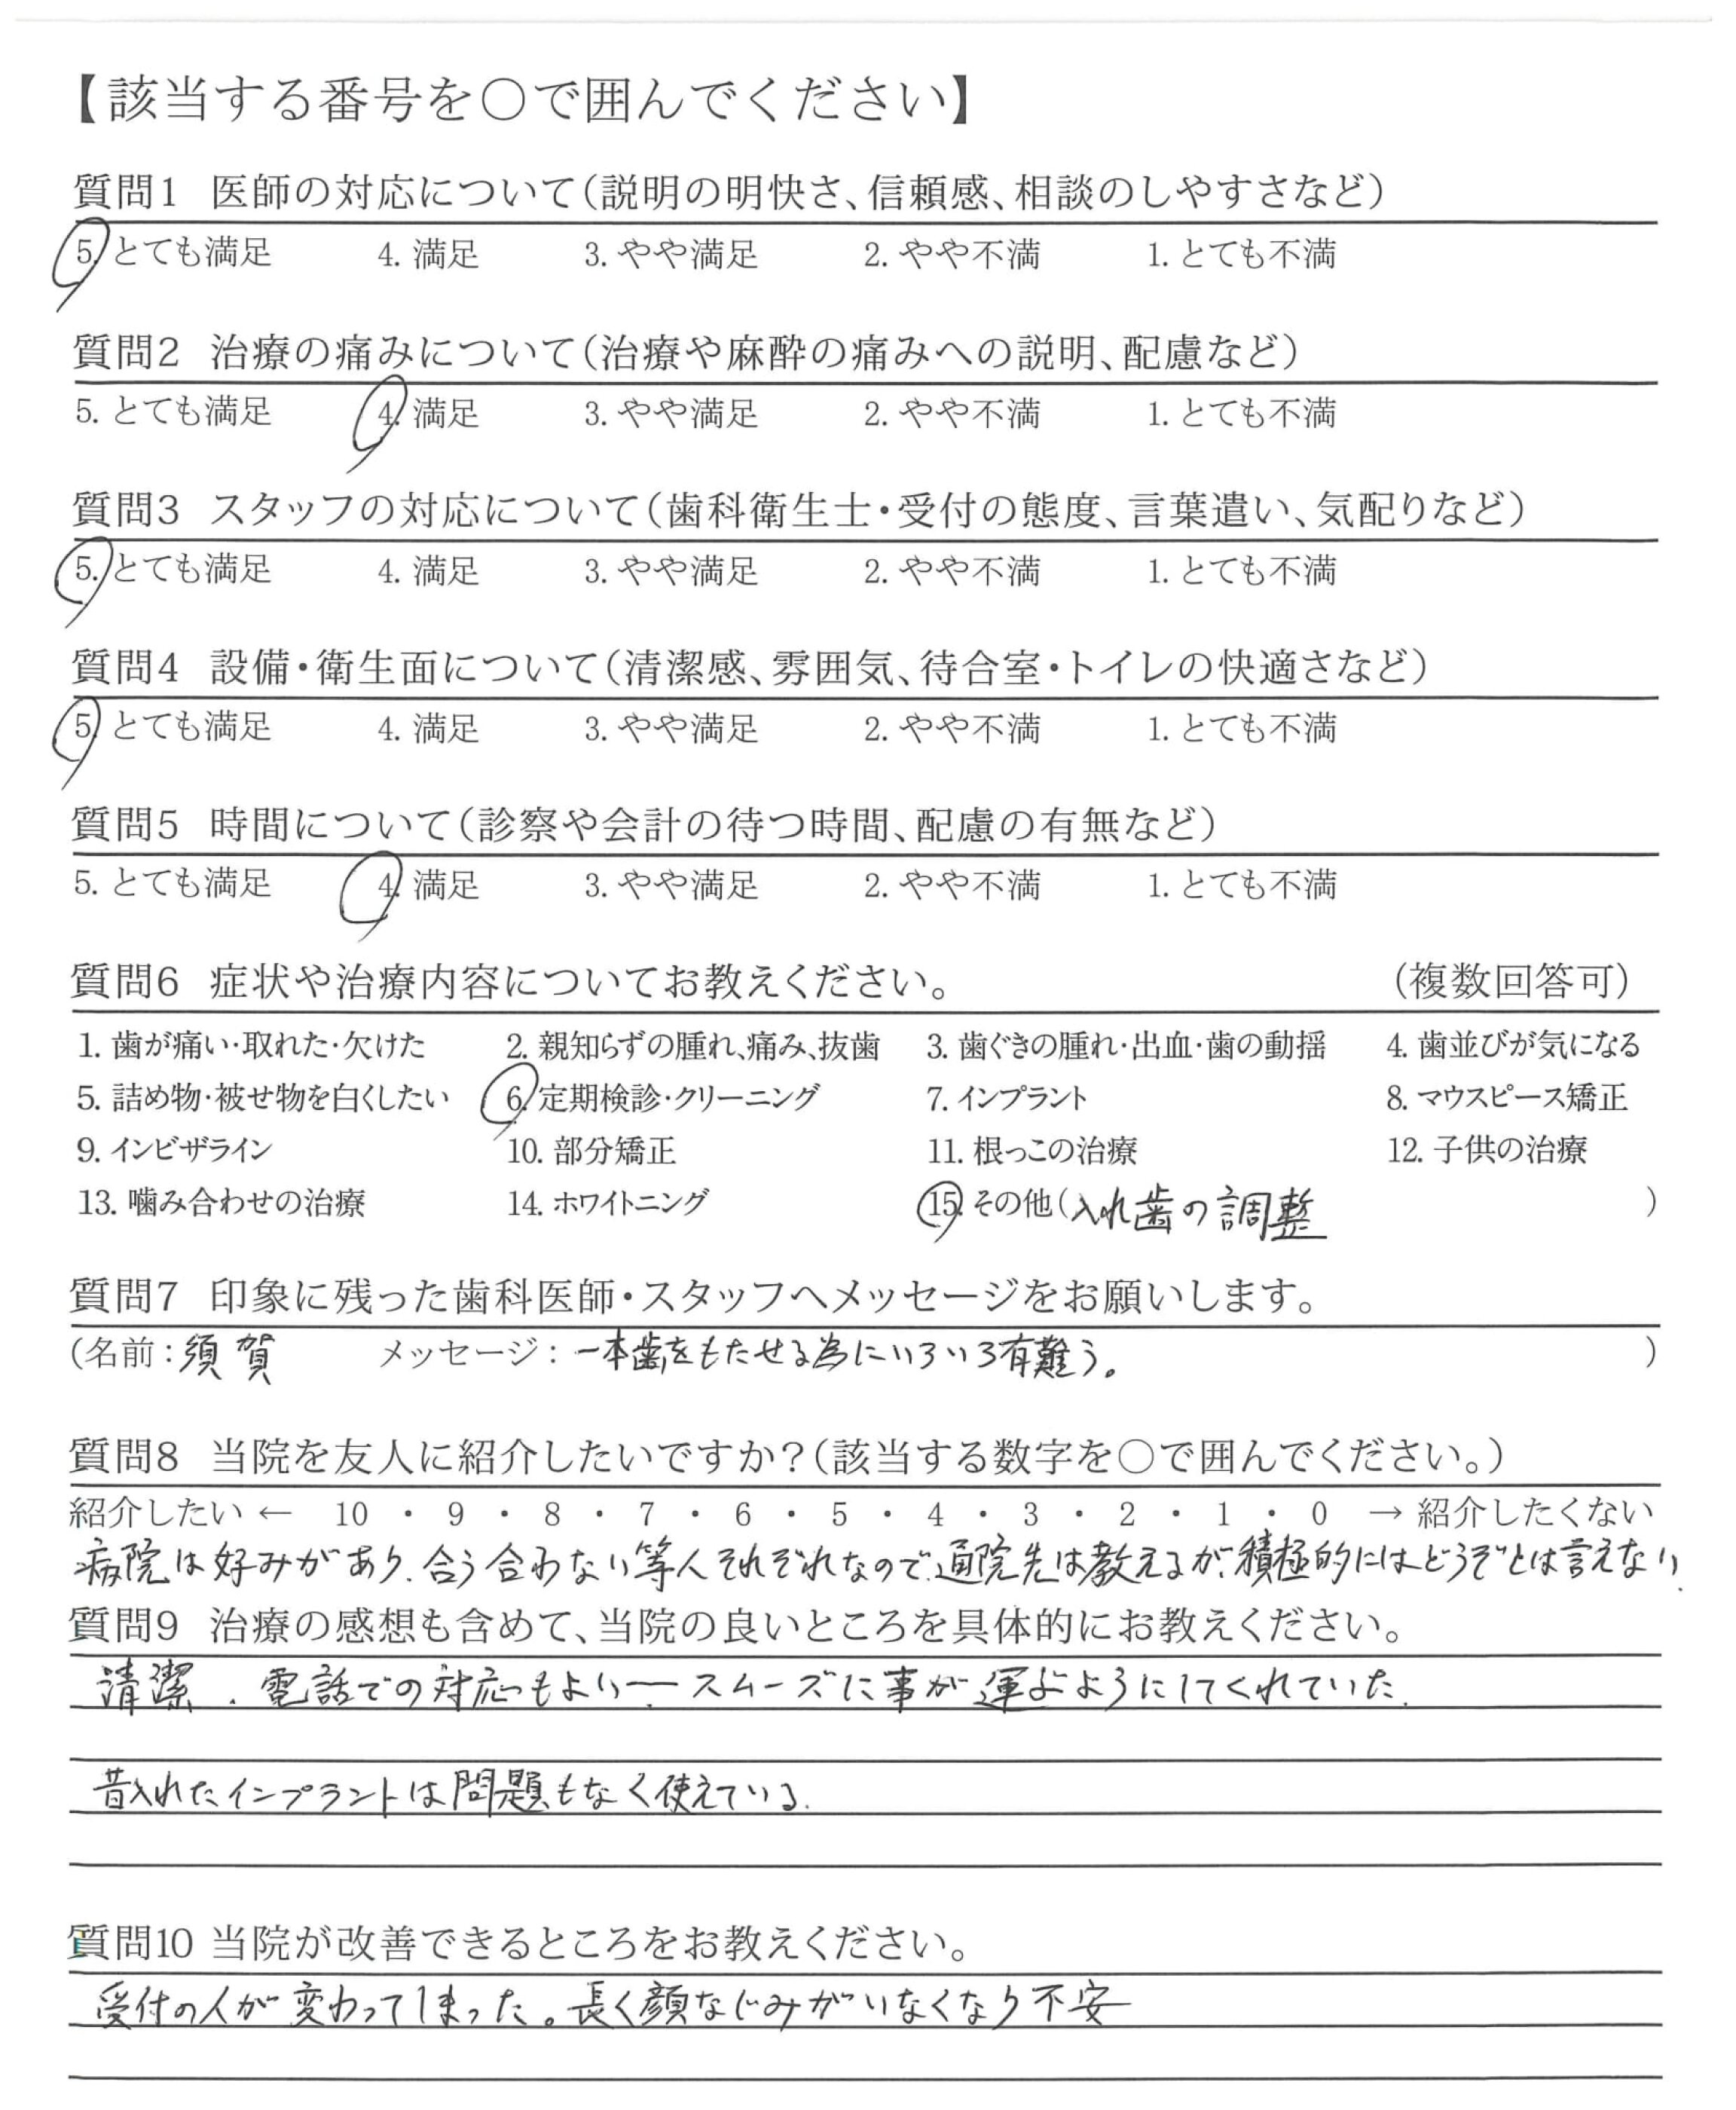 【該当する番号を〇で囲んでください】
質問1 医師の対応について(説明の明快さ、信頼感、相談のしやすさなど)
5. とても満足 4. 満足 3. やや満足 2. やや不満 1. とても不満
質問2 治療の痛みについて(治療や麻酔の痛みへの説明、配慮など)
5. とても満足 4. 満足 3. やや満足 2. やや不満 1. とても不満
質問3 スタッフの対応について(歯科衛生士・受付の態度、言葉遣い、気配りなど)
5. とても満足 4. 満足 3. やや満足 2. やや不満 1. とても不満
質問4 設備・衛生面について(清潔感、雰囲気、待合室・トイレの快適さなど)
5. とても満足 4. 満足 3. やや満足 2. やや不満 1. とても不満
質問5 時間について(診察や会計の待つ時間、配慮の有無など)
5. とても満足 4. 満足 3. やや満足 2. やや不満 1. とても不満
質問6 症状や治療内容についてお教えください。 (複数回答可)
1. 歯が痛い・取れた・欠けた 2. 親知らずの腫れ、痛み、抜歯 3. 歯ぐきの腫れ・出血・歯の動揺 4. 歯並びが気になる
5. 詰め物・被せ物を白くしたい 6. 定期検診・クリーニング 7. インプラント 8. マウスピース矯正
9. インビザライン 10. 部分矯正 11. 根っこの治療 12. 子供の治療
13. 噛み合わせの治療 14. ホワイトニング 15. その他(入れ歯の調整 )
質問7 印象に残った歯科医師・スタッフへメッセージをお願いします。
(名前:須賀 メッセージ:一本歯をもたせる為にいろいろ有難う。 )
質問8 当院を友人に紹介したいですか?(該当する数字を〇で囲んでください。)
紹介したい ← 10 ・ 9 ・ 8 ・ 7 ・ 6 ・ 5 ・ 4 ・ 3 ・ 2 ・ 1 ・ 0 → 紹介したくない
病院は好みがあり、合う合わない等人それぞれなので、通院先は教えるが、積極的にはどうぞとは言えない、
質問9 治療の感想も含めて、当院の良いところを具体的にお教えください。
清潔、電話での対応もよい― スムーズに事が運ぶようにしてくれていた、
昔入れたインプラントは問題もなく使えている、
質問10 当院が改善できるところをお教えください。
受付の人が変わってしまった。長く顔なじみがいなくなり不安